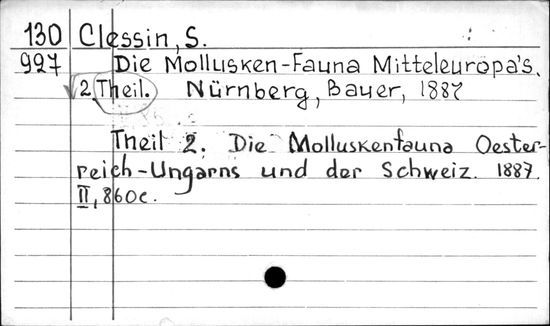 130 Clessin, S.
927 Die Mollusken-Fauna Mitteleuropa's.
2 Theil. Nürnberg, Bauer, 1887
Theil 2. Die Molluskenfauna Oester-
reich-Ungarns und der Schweiz. 1887.
II, 860c.